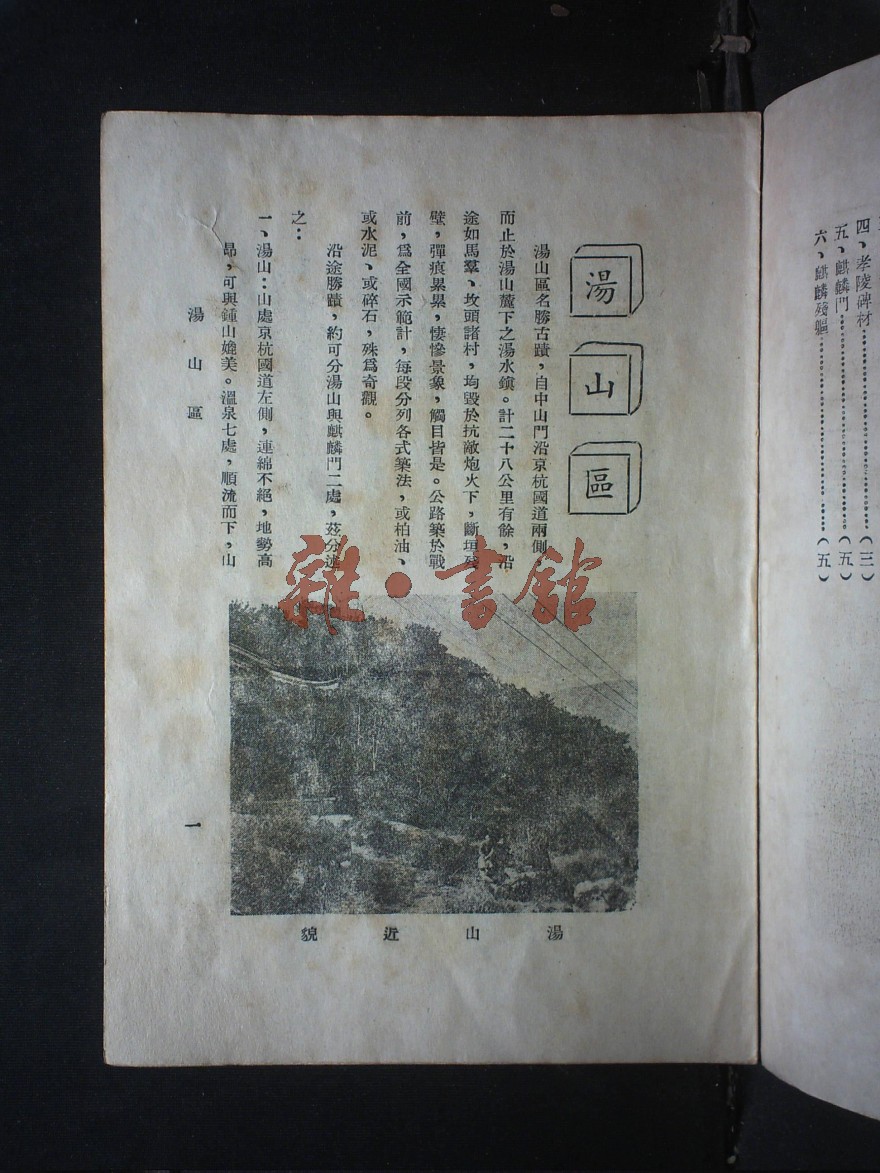 四、孝陵碑材……………………（三）
五、麒麟門……………………（五）
六、麒麟殘軀……………………（五）
湯山區
湯山區名勝古蹟，自中山門沿京杭國道兩側，
而止於湯山麓下之湯水鎮。計二十八公里有餘，沿
途如馬羣、坟頭諸村，均毀於抗敵炮火下，斷垣殘
壁，彈痕累累，悽慘景象，觸目皆是。公路築於戰
前，爲全國示範計，每段分列各式築法，或柏油、
或水泥、或碎石，殊爲奇觀。
沿途勝蹟，約可分湯山與麒麟門二處，茲分述
之：
一、湯山：山處京杭國道左側，連綿不絕，地勢高
昻，可與鍾山媲美。溫泉七處，順流而下，山
湯山近貌
湯山區
一
雜·書館